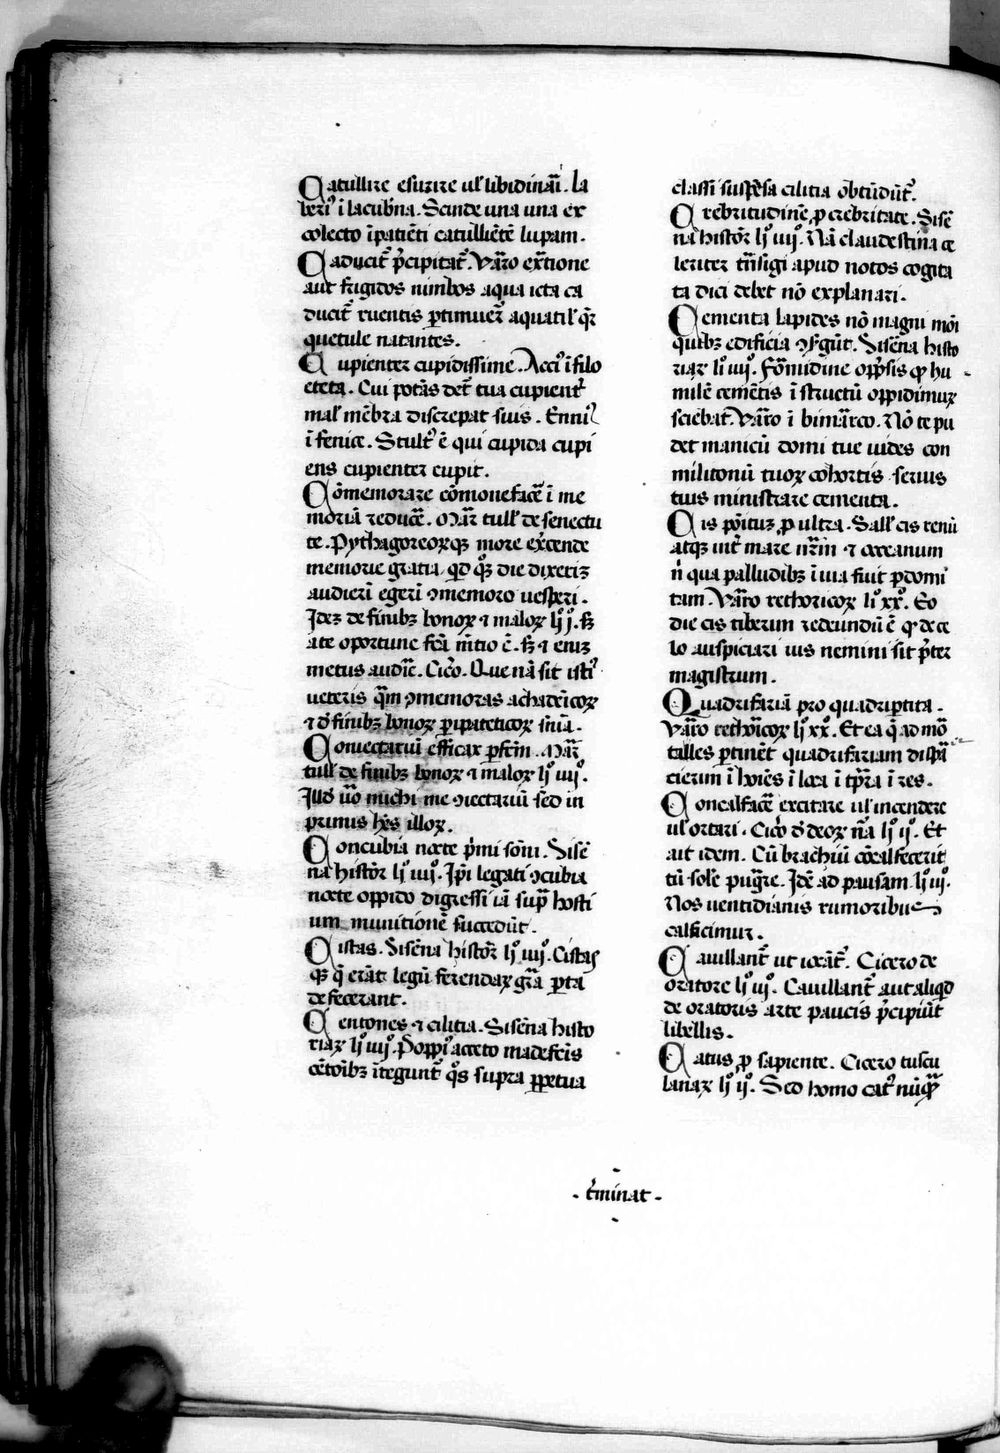 Catullire esurire ul̕ libidinaī. la
beri᷒ ī lacub̄na. Scinde una una ex
colecto īpatiēti catulliētē lupam.
Caducit᷑ p̄cipitat᷑. Va᷑ro ex̄tione
aut frigidos nimbos aqua icta ca
ducit᷑ ruentis ꝑtimuer̄ aquatil̕ q᷑
quetule natantes.
Cupienter cupidissime. Acci᷒ ī filo
cteta. Cui potās det᷑ tua cupient᷑
mal̕ mēbra discrepat suis. Enni᷒
ī fenice. Stult᷒ ē qui cupida cupi
ens cupienter cupit.
Cōmemorare cōmonefac̄e ī me
moriā reduc̄e. Mar᷑ tull̕ de senectu
te. Pythagoreoꝝqꝫ more ex̄cende
memorie gratia qd̕ qͦꝫ die dixerim
audierī egerī ꝯmemoro uesperi.
Idez de finibꝫ bonoꝝ ⁊ maloꝝ lıͦ jͦ. sꝫ
ate oportune fc̄a m̄tio ē. sꝫ ⁊ eius
metus audīe. Cic̄o. Que nā sit isti᷒
ueteris quā ꝯmemoras achadēicoꝝ
⁊ d̕ finibꝫ bonoꝝ ꝑipateticoꝝ sn̄ia.
Conuectatuū efficax ꝑfc̄m. Mar᷑
tull̕ de finibꝫ bonoꝝ ⁊ maloꝝ lıͦ iiijͦ.
Illd̕ uͦ michi me ꝯiectariū sed in
primus hēs illoꝝ.
Concubia nocte p̄mi sōni. Sisē
na histor̄ lıͦ iiijͦ. Ip̄i legati ꝯcubia
nocte oppido digressi iā sup̄ hosti
um munitionē succedūt.
Cistas. Sisēna histor̄ lıͦ iiijͦ. Cistas
qꝫ q̄ erāt legū ferendaꝝ gr̄a ꝑta
defecerant.
Centones ⁊ cilitia. Sisēna histo
riaꝝ lıͦ iiijͦ. Poppi᷒ acceto madefc̄is
cētōibꝫ īteguntͬ qͦs supra ꝑpetua
classi suspēsa cilitia obtūdūt᷑.
Crebritudinē ꝓ crebritate. Sisē
na histor̄ lıͦ iiijͦ. Nā clandestina ce
leriter tn̄sigi apud notos cogita
ta dici debet nō explanari.
Cementa lapides nō magni mōi
quibꝫ edificia ꝯstgūt. Sisēna histo
riaꝝ lıͦ iiijͦ. Fōrmidine opp̄sis ꝙ hu
milē cemētis ī structū oppidimuꝝ
sciebat. Va᷑ro ī bimarco. Nō te pu
det manicū domi tue uides con
militonū tuoꝝ cohortis seruis
tuis ministrare cementa.
Cis pōituꝝ ꝓ ultra. Sall̕ cis renū
atqꝫ int᷑ mare nr̄m ⁊ oceanum
n̄ qua palludibꝫ ī uia fuit ꝑdomi
tam. Va᷑ro rethoricoꝝ lıͦ xxͦ. Eo
die cis tiberim redeundū ē qꝛ de ce
lo auspiciari ius nemini sit p̄ter
magistrum.
Quadrifariā pro quadriꝑtita.
Va᷑ro reth̄icoꝝ lıͦ xxͦ. Et ea q̄ ad mō
talles ꝑtinēt quadrifariam disꝑā
cierim ī hoīes ī loca ī tp̄ra ī res.
Concalfac̄e excitare ul̕ incendere
ul̕ ortari. Cic̄o d̕ deoꝝ nā lıͦ ijͦ. Et
ait idem. Cū brachiū cōcalfecerit
tū sole pug̅re. Idē ad pausam lıͦ iijͦ.
Nos uentidianis rumoribus
calficimur.
Cauillant᷑ ut iocāt᷑. Cicero de
oratore lıͦ iijͦ. Cauillant᷑ aut aliqd̕
de oratoris arte paucis p̄cipiūt
libellis.
Catus ꝓ sapiente. Cicero tuscu
lanaꝝ lıͦ ijͦ. Sed homo cat᷒ nūqͣꝫ
. t᷑minat .